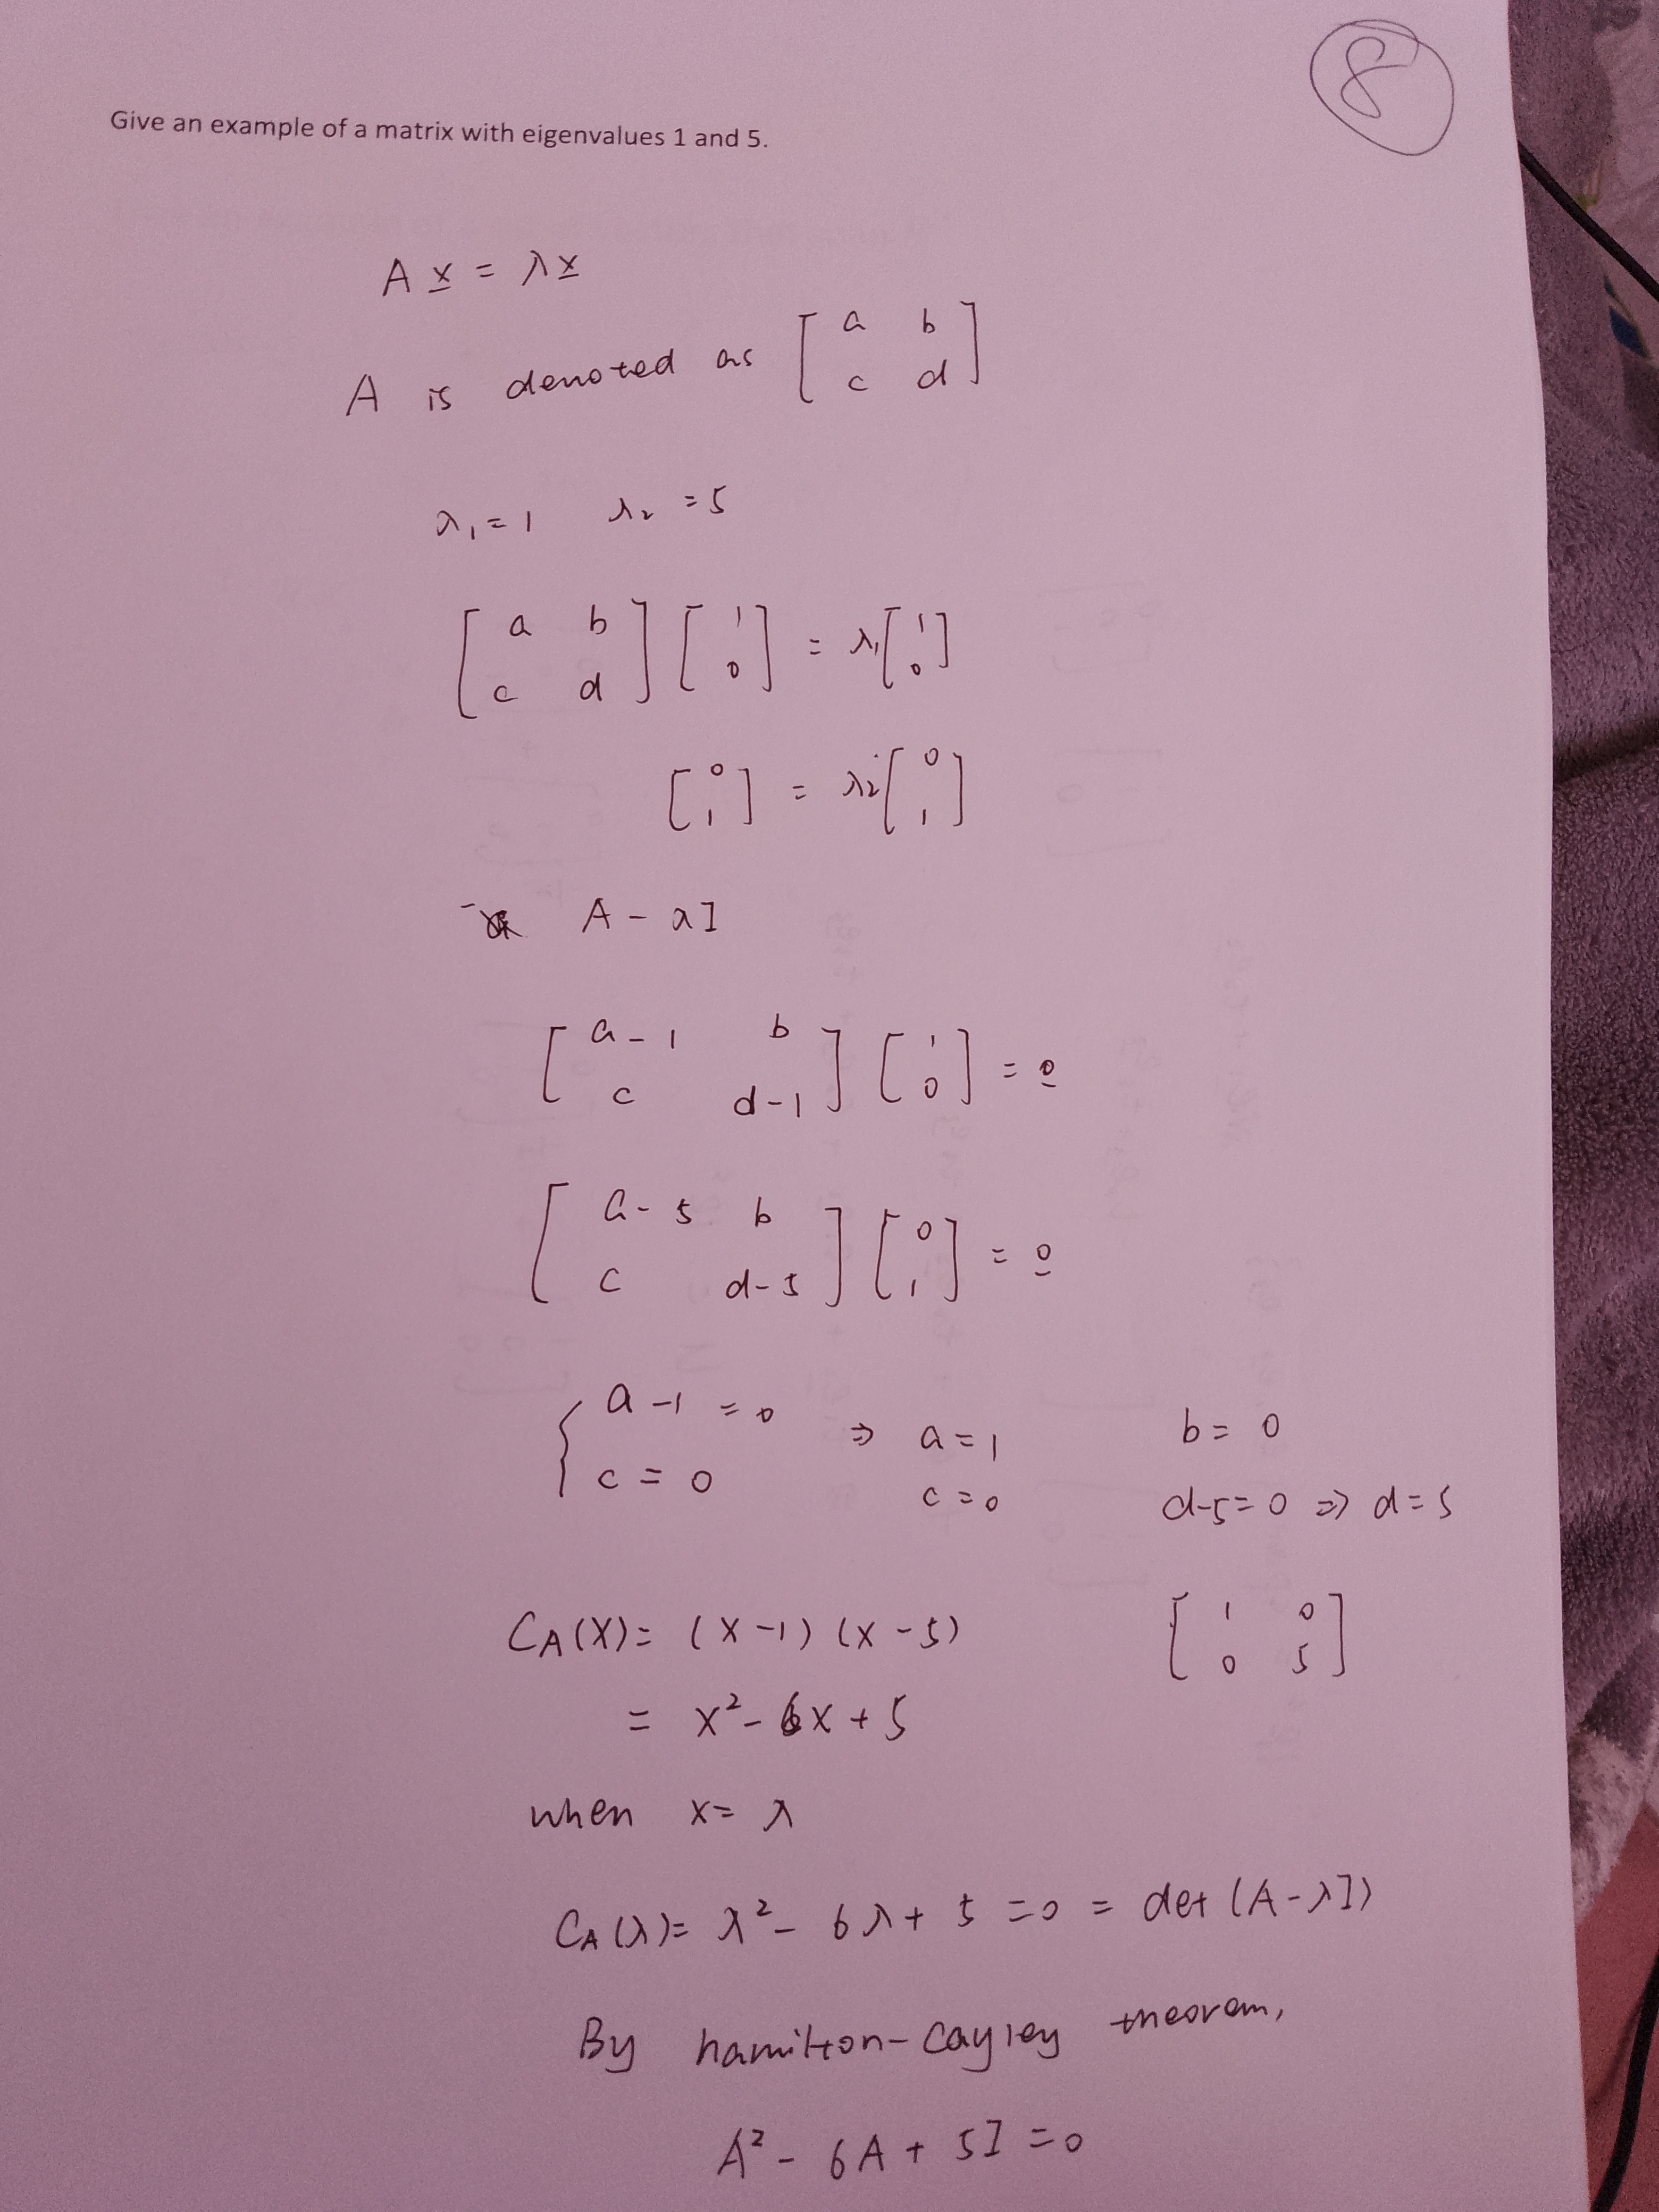 8
Give an example of a matrix with eigenvalues 1 and 5.
A x = λ x
A is denoted as [ a b
c d ]
λ₁ = 1 λ₂ = 5
[ a b
c d ] [ 1
0 ] = λ₁ [ 1
0 ]
[ 0
1 ] = λ₂ [ 0
1 ]
A - λI
[ a-1 b
c d-1 ] [ 1
0 ] = 0
[ a-5 b
c d-5 ] [ 0
1 ] = 0
{ a-1 = 0 ⇒ a = 1 b = 0
c = 0 c = 0 d-5 = 0 ⇒ d = 5
C_A(X) = (X-1)(X-5) [ 1 0
0 5 ]
= X² - 6X + 5
when X = λ
C_A(λ) = λ² - 6λ + 5 = 0 = det(A-λI)
By hamilton-Cayley theorem,
A² - 6A + 5I = 0